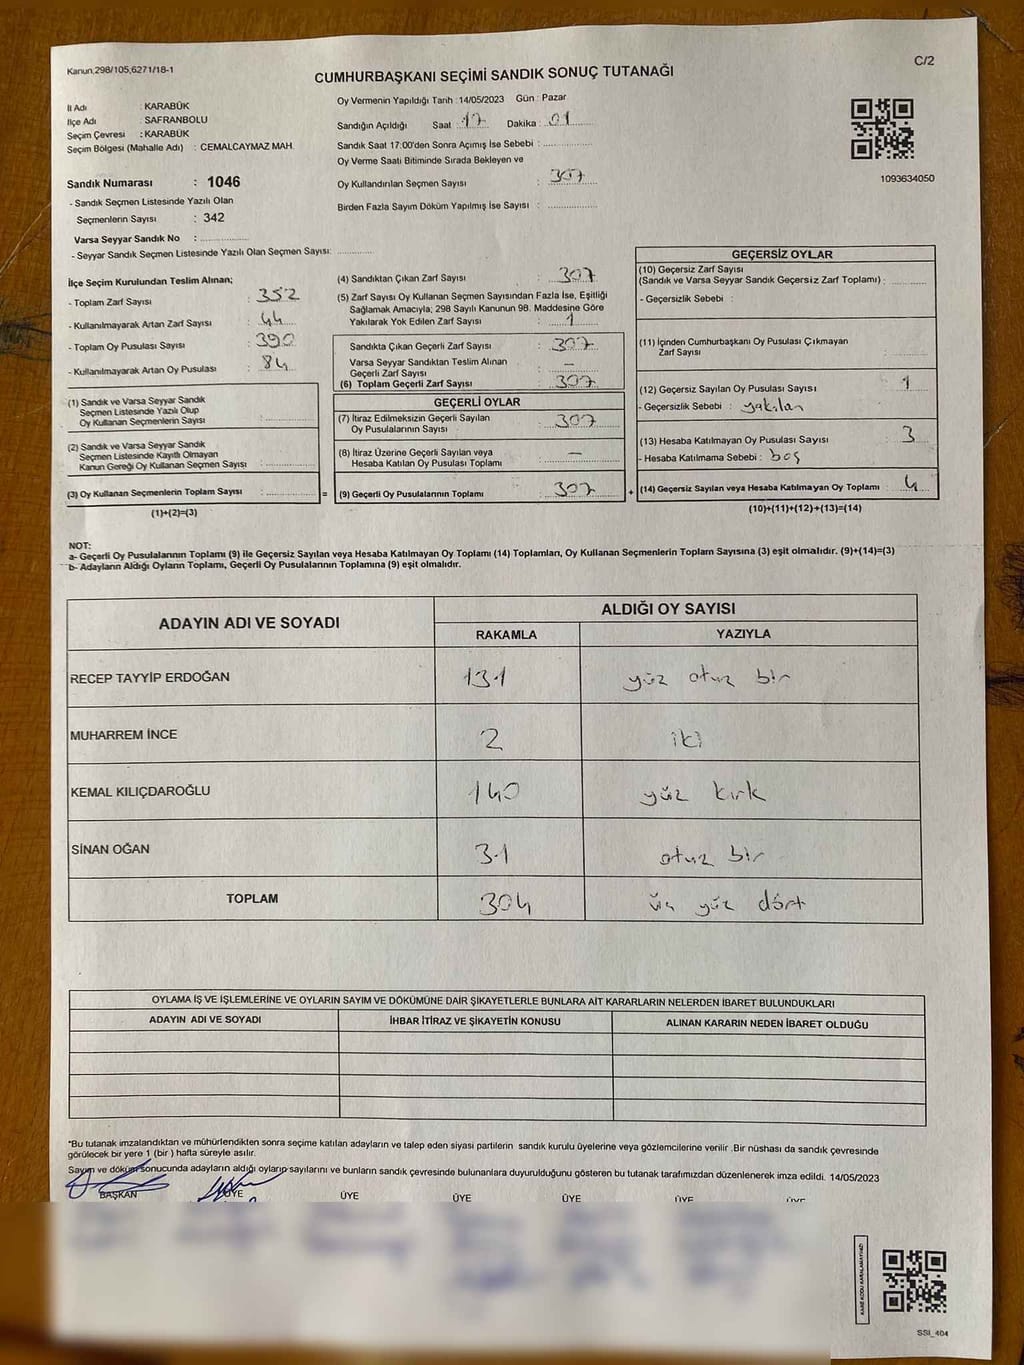 Kanun,298/105,6271/18-1
C/2
CUMHURBAŞKANI SEÇİMİ SANDIK SONUÇ TUTANAĞI
İl Adı : KARABÜK
İlçe Adı : SAFRANBOLU
Seçim Çevresi : KARABÜK
Seçim Bölgesi (Mahalle Adı) : CEMALCAYMAZ MAH.
Sandık Numarası : 1046
- Sandık Seçmen Listesinde Yazılı Olan
Seçmenlerin Sayısı : 342
Varsa Seyyar Sandık No :
- Seyyar Sandık Seçmen Listesinde Yazılı Olan Seçmen Sayısı:
Oy Vermenin Yapıldığı Tarih :14/05/2023 Gün : Pazar
Sandığın Açıldığı Saat : 17 Dakika : 01
Sandık Saat 17:00'den Sonra Açımış İse Sebebi :
Oy Verme Saati Bitiminde Sırada Bekleyen ve
Oy Kullandırılan Seçmen Sayısı : 307
Birden Fazla Sayım Döküm Yapılmış İse Sayısı :
1093634050
İlçe Seçim Kurulundan Teslim Alınan;
- Toplam Zarf Sayısı : 352
- Kullanılmayarak Artan Zarf Sayısı : 44
- Toplam Oy Pusulası Sayısı : 390
- Kullanılmayarak Artan Oy Pusulası : 84
(1) Sandık ve Varsa Seyyar Sandık
Seçmen Listesinde Yazılı Olup
Oy Kullanan Seçmenlerin Sayısı :
(2) Sandık ve Varsa Seyyar Sandık
Seçmen Listesinde Kayıtlı Olmayan
Kanun Gereği Oy Kullanan Seçmen Sayısı :
(3) Oy Kullanan Seçmenlerin Toplam Sayısı :
(1)+(2)=(3)
=
(4) Sandıktan Çıkan Zarf Sayısı : 307
(5) Zarf Sayısı Oy Kullanan Seçmen Sayısından Fazla İse, Eşitliği
Sağlamak Amacıyla; 298 Sayılı Kanunun 98. Maddesine Göre
Yakılarak Yok Edilen Zarf Sayısı : 1
Sandıkta Çıkan Geçerli Zarf Sayısı : 307
Varsa Seyyar Sandıktan Teslim Alınan
Geçerli Zarf Sayısı : —
(6) Toplam Geçerli Zarf Sayısı : 307
GEÇERLİ OYLAR
(7) İtiraz Edilmeksizin Geçerli Sayılan
Oy Pusulalarının Sayısı : 307
(8) İtiraz Üzerine Geçerli Sayılan veya
Hesaba Katılan Oy Pusulası Toplamı : —
(9) Geçerli Oy Pusulalarının Toplamı : 307
+
GEÇERSİZ OYLAR
(10) Geçersiz Zarf Sayısı
(Sandık ve Varsa Seyyar Sandık Geçersiz Zarf Toplamı) :
- Geçersizlik Sebebi :
(11) İçinden Cumhurbaşkanı Oy Pusulası Çıkmayan
Zarf Sayısı :
(12) Geçersiz Sayılan Oy Pusulası Sayısı : 1
- Geçersizlik Sebebi : yakılan
(13) Hesaba Katılmayan Oy Pusulası Sayısı : 3
- Hesaba Katılmama Sebebi : boş
(14) Geçersiz Sayılan veya Hesaba Katılmayan Oy Toplamı : 4
(10)+(11)+(12)+(13)=(14)
NOT:
a- Geçerli Oy Pusulalarının Toplamı (9) ile Geçersiz Sayılan veya Hesaba Katılmayan Oy Toplamı (14) Toplamları, Oy Kullanan Seçmenlerin Toplam Sayısına (3) eşit olmalıdır. (9)+(14)=(3)
b- Adayların Aldığı Oyların Toplamı, Geçerli Oy Pusulalarının Toplamına (9) eşit olmalıdır.
ADAYIN ADI VE SOYADI
ALDIĞI OY SAYISI
RAKAMLA YAZIYLA
RECEP TAYYİP ERDOĞAN 131 yüz otuz bir
MUHARREM İNCE 2 iki
KEMAL KILIÇDAROĞLU 140 yüz kırk
SİNAN OĞAN 31 otuz bir
TOPLAM 304 üç yüz dört
OYLAMA İŞ VE İŞLEMLERİNE VE OYLARIN SAYIM VE DÖKÜMÜNE DAİR ŞİKAYETLERLE BUNLARA AİT KARARLARIN NELERDEN İBARET BULUNDUKLARI
ADAYIN ADI VE SOYADI İHBAR İTİRAZ VE ŞİKAYETİN KONUSU ALINAN KARARIN NEDEN İBARET OLDUĞU
*Bu tutanak imzalandıktan ve mühürlendikten sonra seçime katılan adayların ve talep eden siyasi partilerin sandık kurulu üyelerine veya gözlemcilerine verilir .Bir nüshası da sandık çevresinde
görülecek bir yere 1 (bir ) hafta süreyle asılır.
Sayım ve döküm sonucunda adayların aldığı oyların sayılarını ve bunların sandık çevresinde bulunanlara duyurulduğunu gösteren bu tutanak tarafımızdan düzenlenerek imza edildi. 14/05/2023
BAŞKAN ÜYE ÜYE ÜYE ÜYE ÜYE ÜYE
KARE KODU KARALAMAYINIZ!
SSI_404